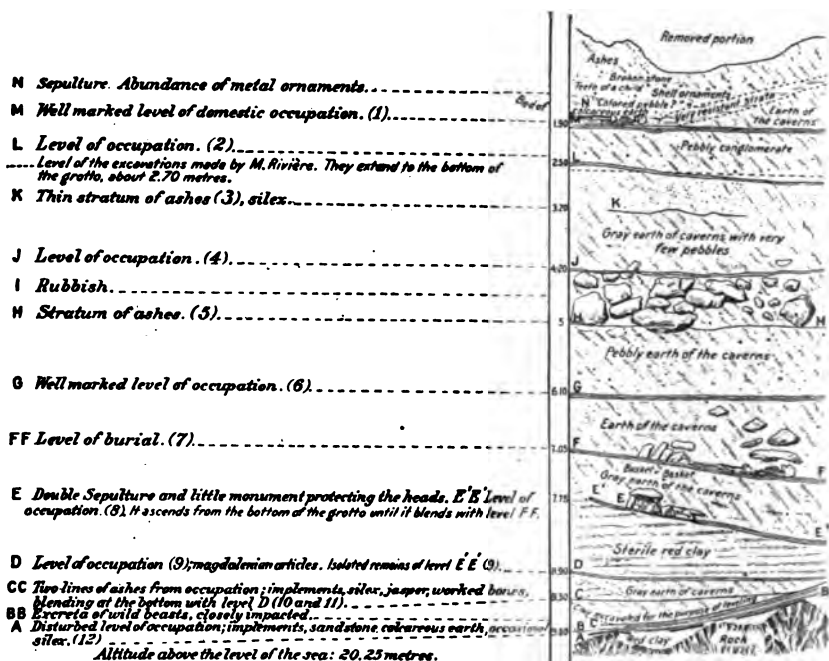 N Sepulture. Abundance of metal ornaments.
M Well marked level of domestic occupation. (1)
L Level of occupation. (2)
Level of the excavations made by M. Rivière. They extend to the bottom of
the grotto, about 2.70 metres.
K Thin stratum of ashes (3), silex.
J Level of occupation. (4)
I Rubbish.
H Stratum of ashes. (5)
G Well marked level of occupation. (6)
FF Level of burial. (7)
E Double Sepulture and little monument protecting the heads. E'E' Level of
occupation. (8). It ascends from the bottom of the grotto until it blends with level FF.
D Level of occupation (9); magdalenian articles. Isolated remains of level E'E' (9).
CC Two lines of ashes from occupation; implements, silex, jasper, worked bones,
blending at the bottom with level D (10 and 11).
BB Excreta of wild beasts, closely impacted.
A Disturbed level of occupation; implements, sandstone, calcareous earth,
silex. (12)
Altitude above the level of the sea: 20.25 metres.
Removed portion
Ashes
Broken stone
Teeth of a child
Shell ornaments
N Colored pebble?
Very resistant strata
Bed of
Earth of
the caverns
M
1.90
Pebbly conglomerate
L
2.50
K
3.20
Gray earth of caverns with very
few pebbles
J
4.20
H
H
5
Pebbly earth of the caverns
G
6.10
Earth of the caverns
F
F
7.05
Basket
Basket
Gray earth of the caverns
E'
E
7.75
E'
Sterile red clay
D
C
Gray earth of caverns
B
8.30
Excavated for the purpose of
B C
A
Red clay
Rock